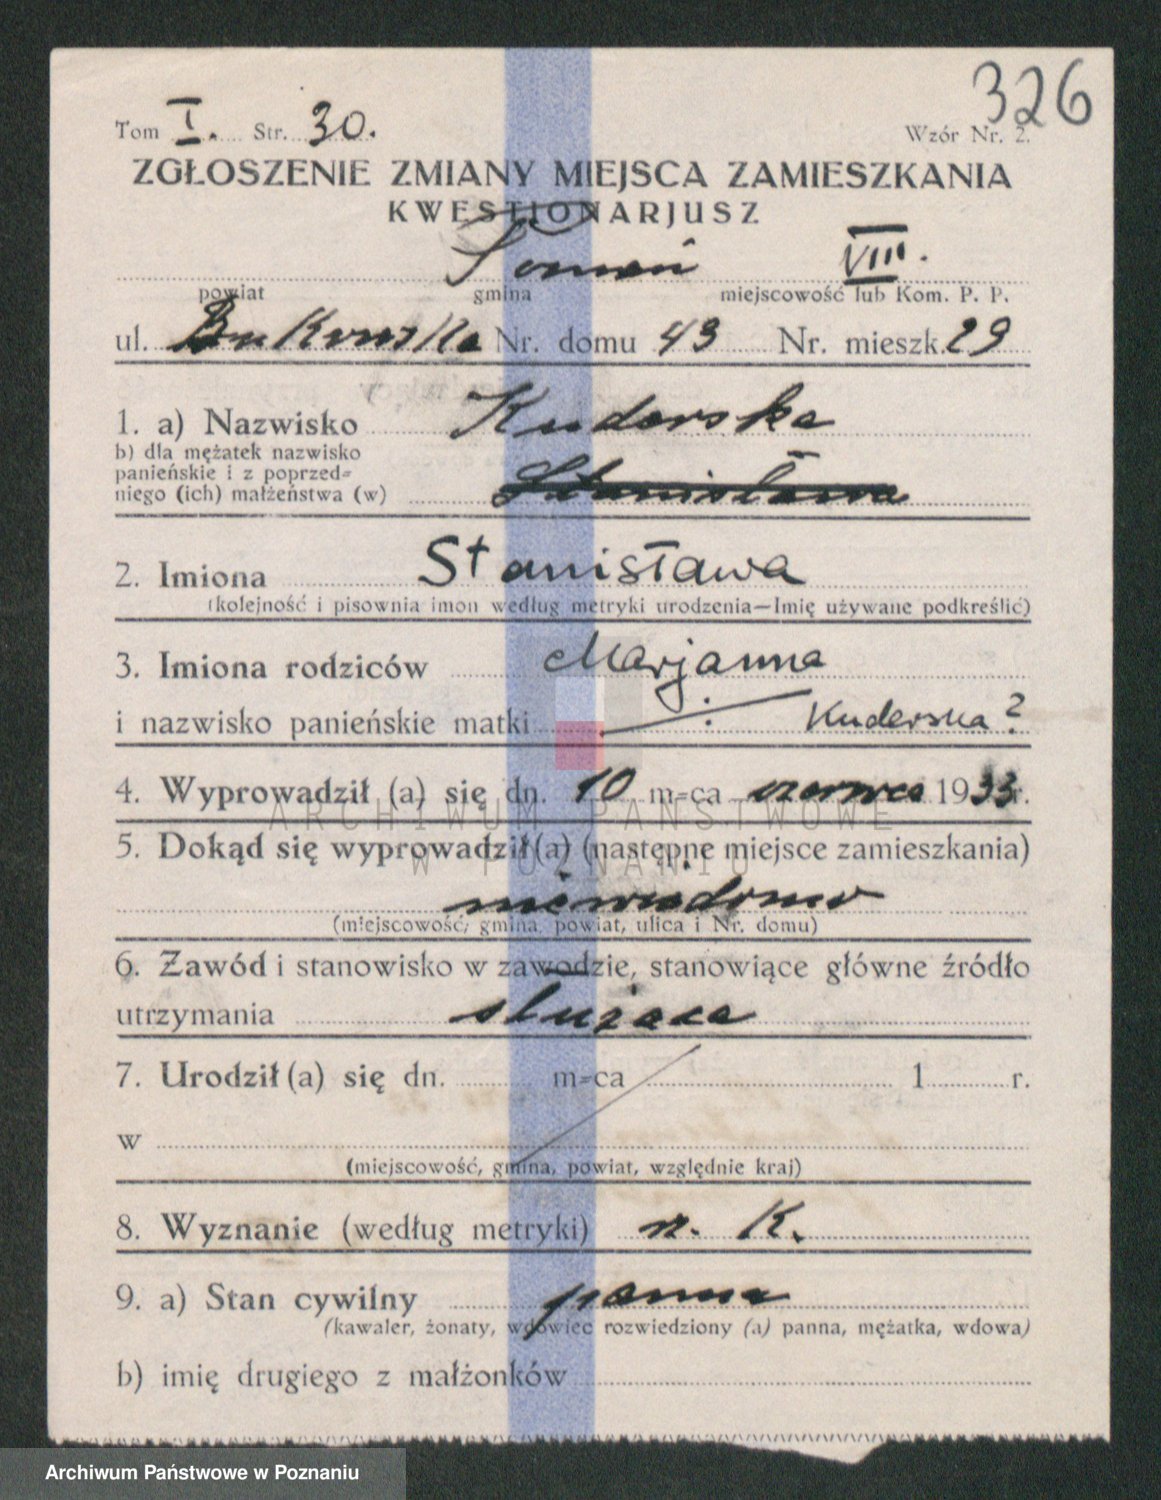 326
Tom I. Str. 30. Wzór Nr. 2.
ZGŁOSZENIE ZMIANY MIEJSCA ZAMIESZKANIA
KWESTIONARJUSZ
VIII.
powiat gmina miejscowość lub Kom. P. P.
ul. Bukowska Nr. domu 43 Nr. mieszk. 29
1. a) Nazwisko Kuderska
b) dla mężatek nazwisko
panieńskie i z poprzed=
niego (ich) małżeństwa (w) Stanisława
2. Imiona Stanisława
(kolejność i pisownia imon według metryki urodzenia—Imię używane podkreślić)
3. Imiona rodziców Marjanna
i nazwisko panieńskie matki Kuderska?
4. Wyprowadził (a) się dn. 10 m=ca czerwca 1933 r.
ARCHIWUM PAŃSTWOWE
5. Dokąd się wyprowadził(a) (następne miejsce zamieszkania)
W POZNANIU
niewiadomo
(miejscowość, gmina, powiat, ulica i Nr. domu)
6. Zawód i stanowisko w zawodzie, stanowiące główne źródło
utrzymania służąca
7. Urodził (a) się dn. m=ca 1 r.
w
(miejscowość, gmina, powiat, względnie kraj)
8. Wyznanie (według metryki) rz. K.
9. a) Stan cywilny panna
(kawaler, żonaty, wdowiec rozwiedziony (a) panna, mężatka, wdowa)
b) imię drugiego z małżonków
Archiwum Państwowe w Poznaniu